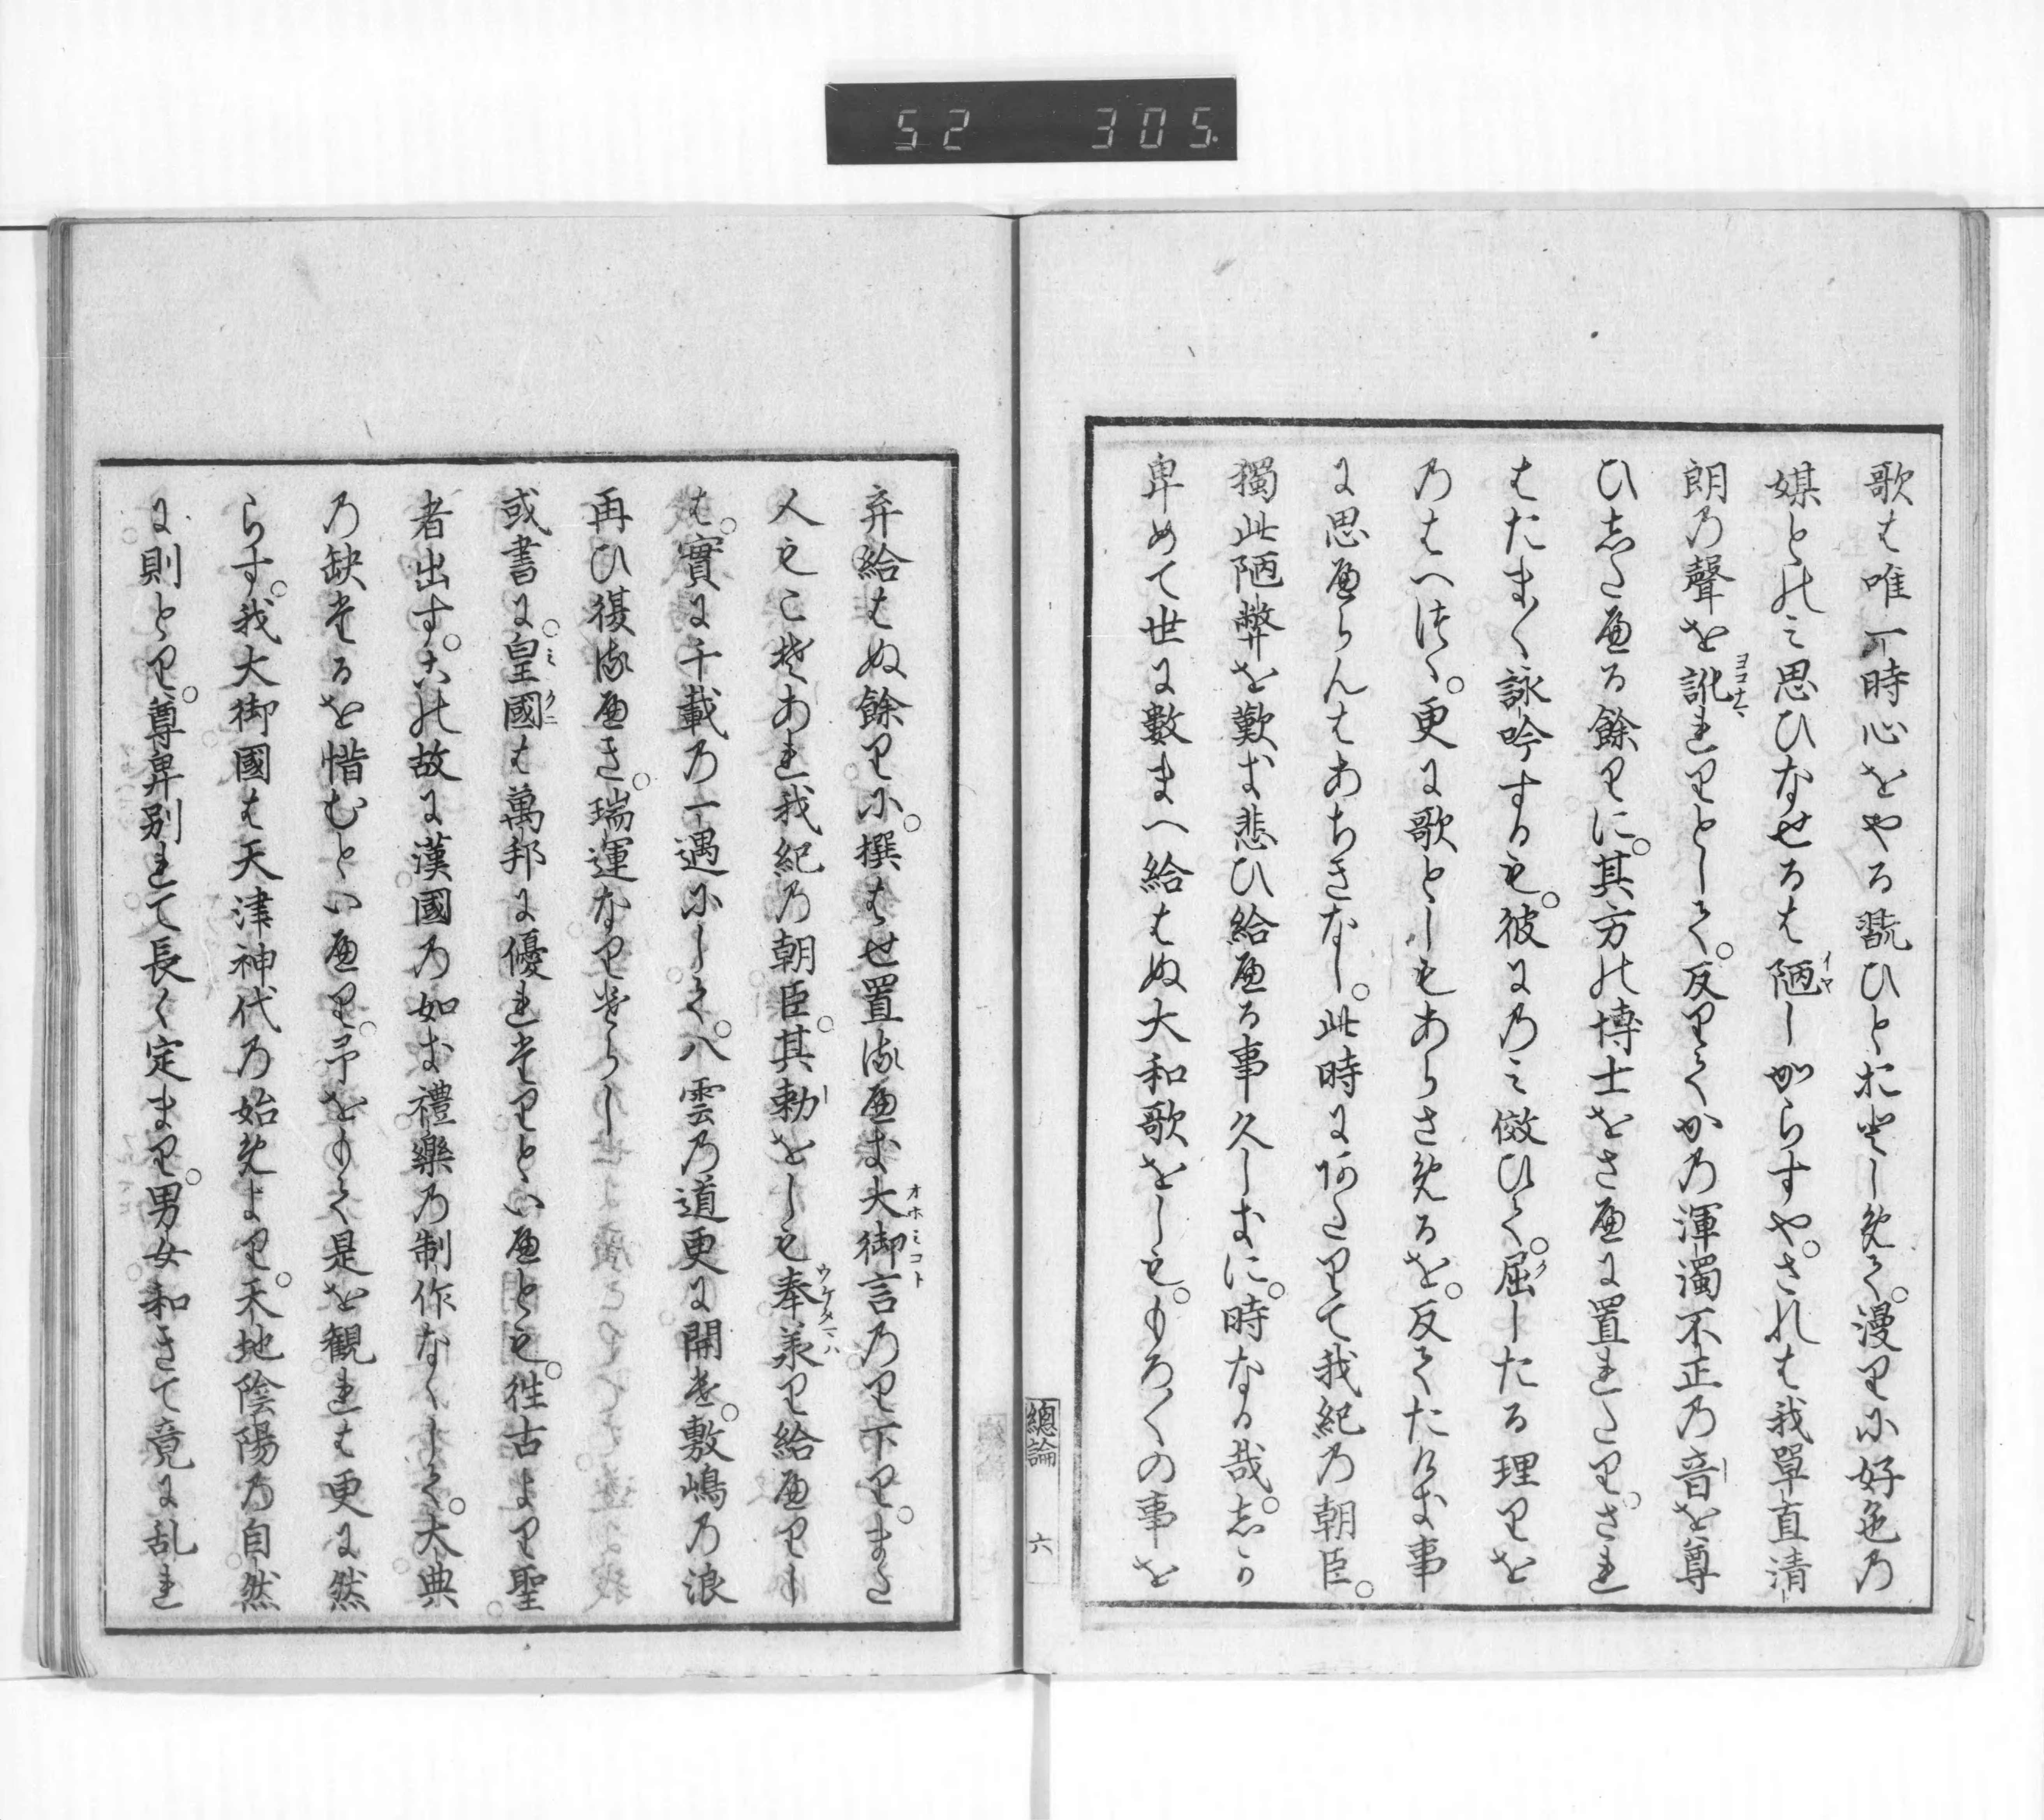 52 305
歌は唯一時心をやる翫ひとおとしめて。漫りに好色の
媒とのミ思ひなせるは陋しからすや。されは我單直清
朗の聲を訛れりとして。反りてかの渾濁不正の音を尊
ひしたへる餘りに。其方の博士をさへに置れたり。され
はたま〱詠吟するも。彼にのミ傚ひて。屈したる理りを
のはへ
更に歌としもあらさめるを。反てたけき事
に思へらんはあちきなし。此時にあたりて我紀の朝臣。
獨此陋弊を歎き悲ひ給へる事久しきに。時なる哉。しか
卑めて世に數まへ給はぬ大和歌をしも。もろ〱の事を
總論 六
弃給はぬ餘りに。撰はせ置るへき大御言のり下り。また
人もこそあれ我紀の朝臣。其勅をしも奉羕り給へりし
は。實に千載の一遇にして。八雲の道更に開き。敷嶋の浪
再ひ復るへき。瑞運なりけらし
或書に。皇國は萬邦に優れたりといへとも。徃古より聖
者出す。この故に漢國の如き禮樂の制作なくして。大典
の缺たるを惜むといへり。予をもて是を観れは更に然
らす。我大御國は天津神代の始めより。天地陰陽の自然
に則とり。尊卑別れて長く定まり。男女和きて竟に乱れ